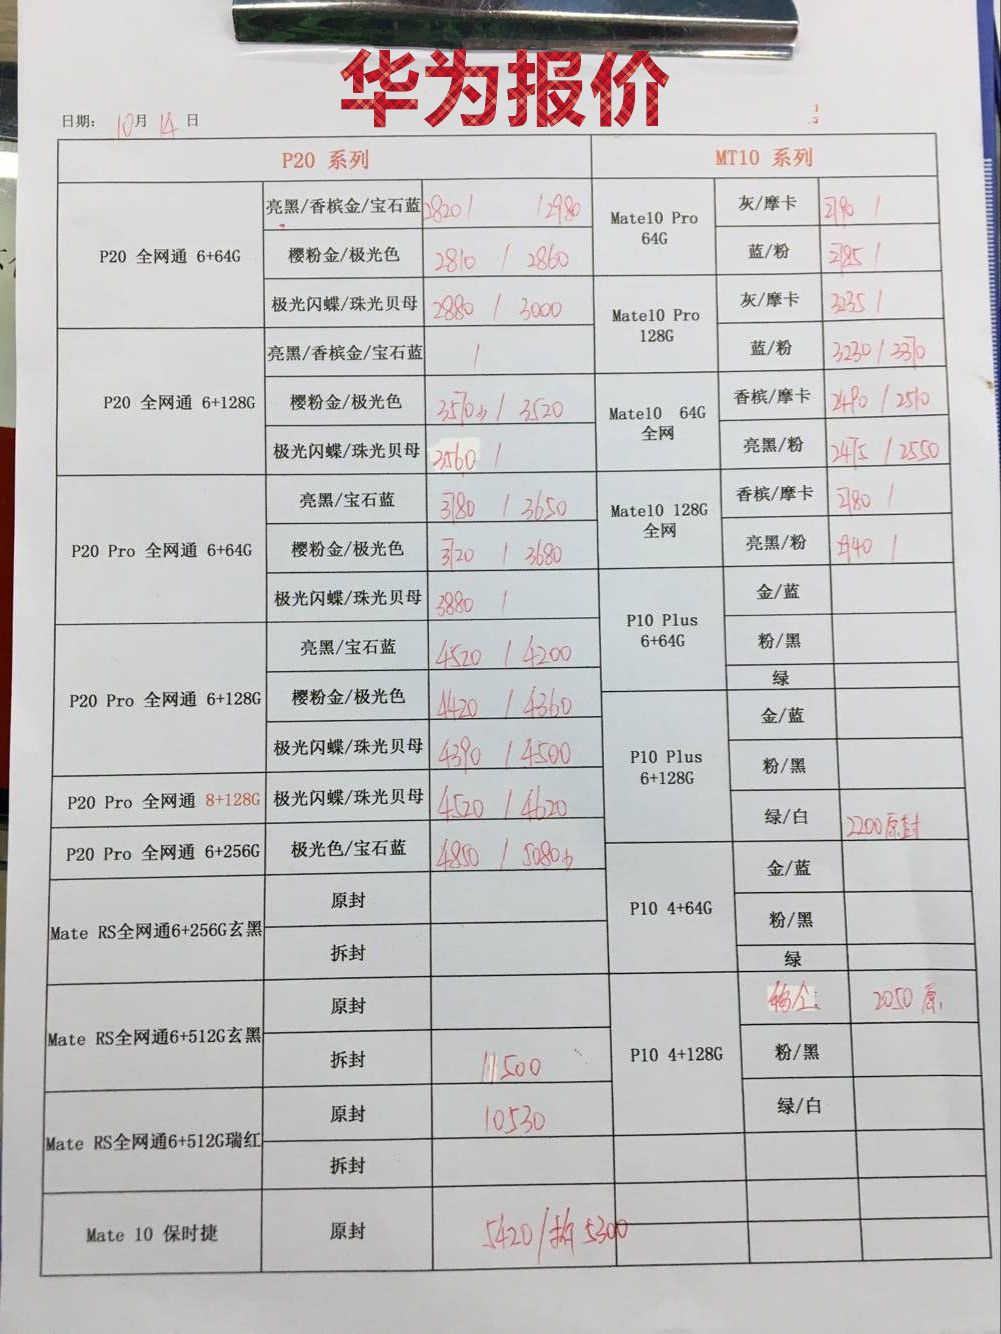 华为报价
日期: 10月 14 日
P20 系列
MT10 系列
P20 全网通 6+64G
亮黑/香槟金/宝石蓝 2820 / / 2980
樱粉金/极光色 2810 / 2860
极光闪蝶/珠光贝母 2880 / 3000
P20 全网通 6+128G
亮黑/香槟金/宝石蓝 /
樱粉金/极光色 / 3520
极光闪蝶/珠光贝母 3560 /
P20 Pro 全网通 6+64G
亮黑/宝石蓝 3780 / 3650
樱粉金/极光色 3720 / 3680
极光闪蝶/珠光贝母 3880 /
P20 Pro 全网通 6+128G
亮黑/宝石蓝 4520 / 4200
樱粉金/极光色 4420 / 4360
极光闪蝶/珠光贝母 4390 / 4500
P20 Pro 全网通 8+128G 极光闪蝶/珠光贝母 4520 / 4620
P20 Pro 全网通 6+256G 极光色/宝石蓝 4850 /
Mate RS全网通6+256G玄黑
原封
拆封
Mate RS全网通6+512G玄黑
原封
拆封 11500
Mate RS全网通6+512G瑞红
原封 10530
拆封
Mate 10 保时捷 原封 5420/拆 5300
Mate10 Pro
64G
灰/摩卡 2790 /
蓝/粉 2785 /
Mate10 Pro
128G
灰/摩卡 3235 /
蓝/粉 3230 / 3370
Mate10 64G
全网
香槟/摩卡 2490 / 2510
亮黑/粉 2475 / 2550
Mate10 128G
全网
香槟/摩卡 2780 /
亮黑/粉 /
P10 Plus
6+64G
金/蓝
粉/黑
绿
P10 Plus
6+128G
金/蓝
粉/黑
绿/白 2200原封
P10 4+64G
金/蓝
粉/黑
绿
P10 4+128G
2050 原
粉/黑
绿/白